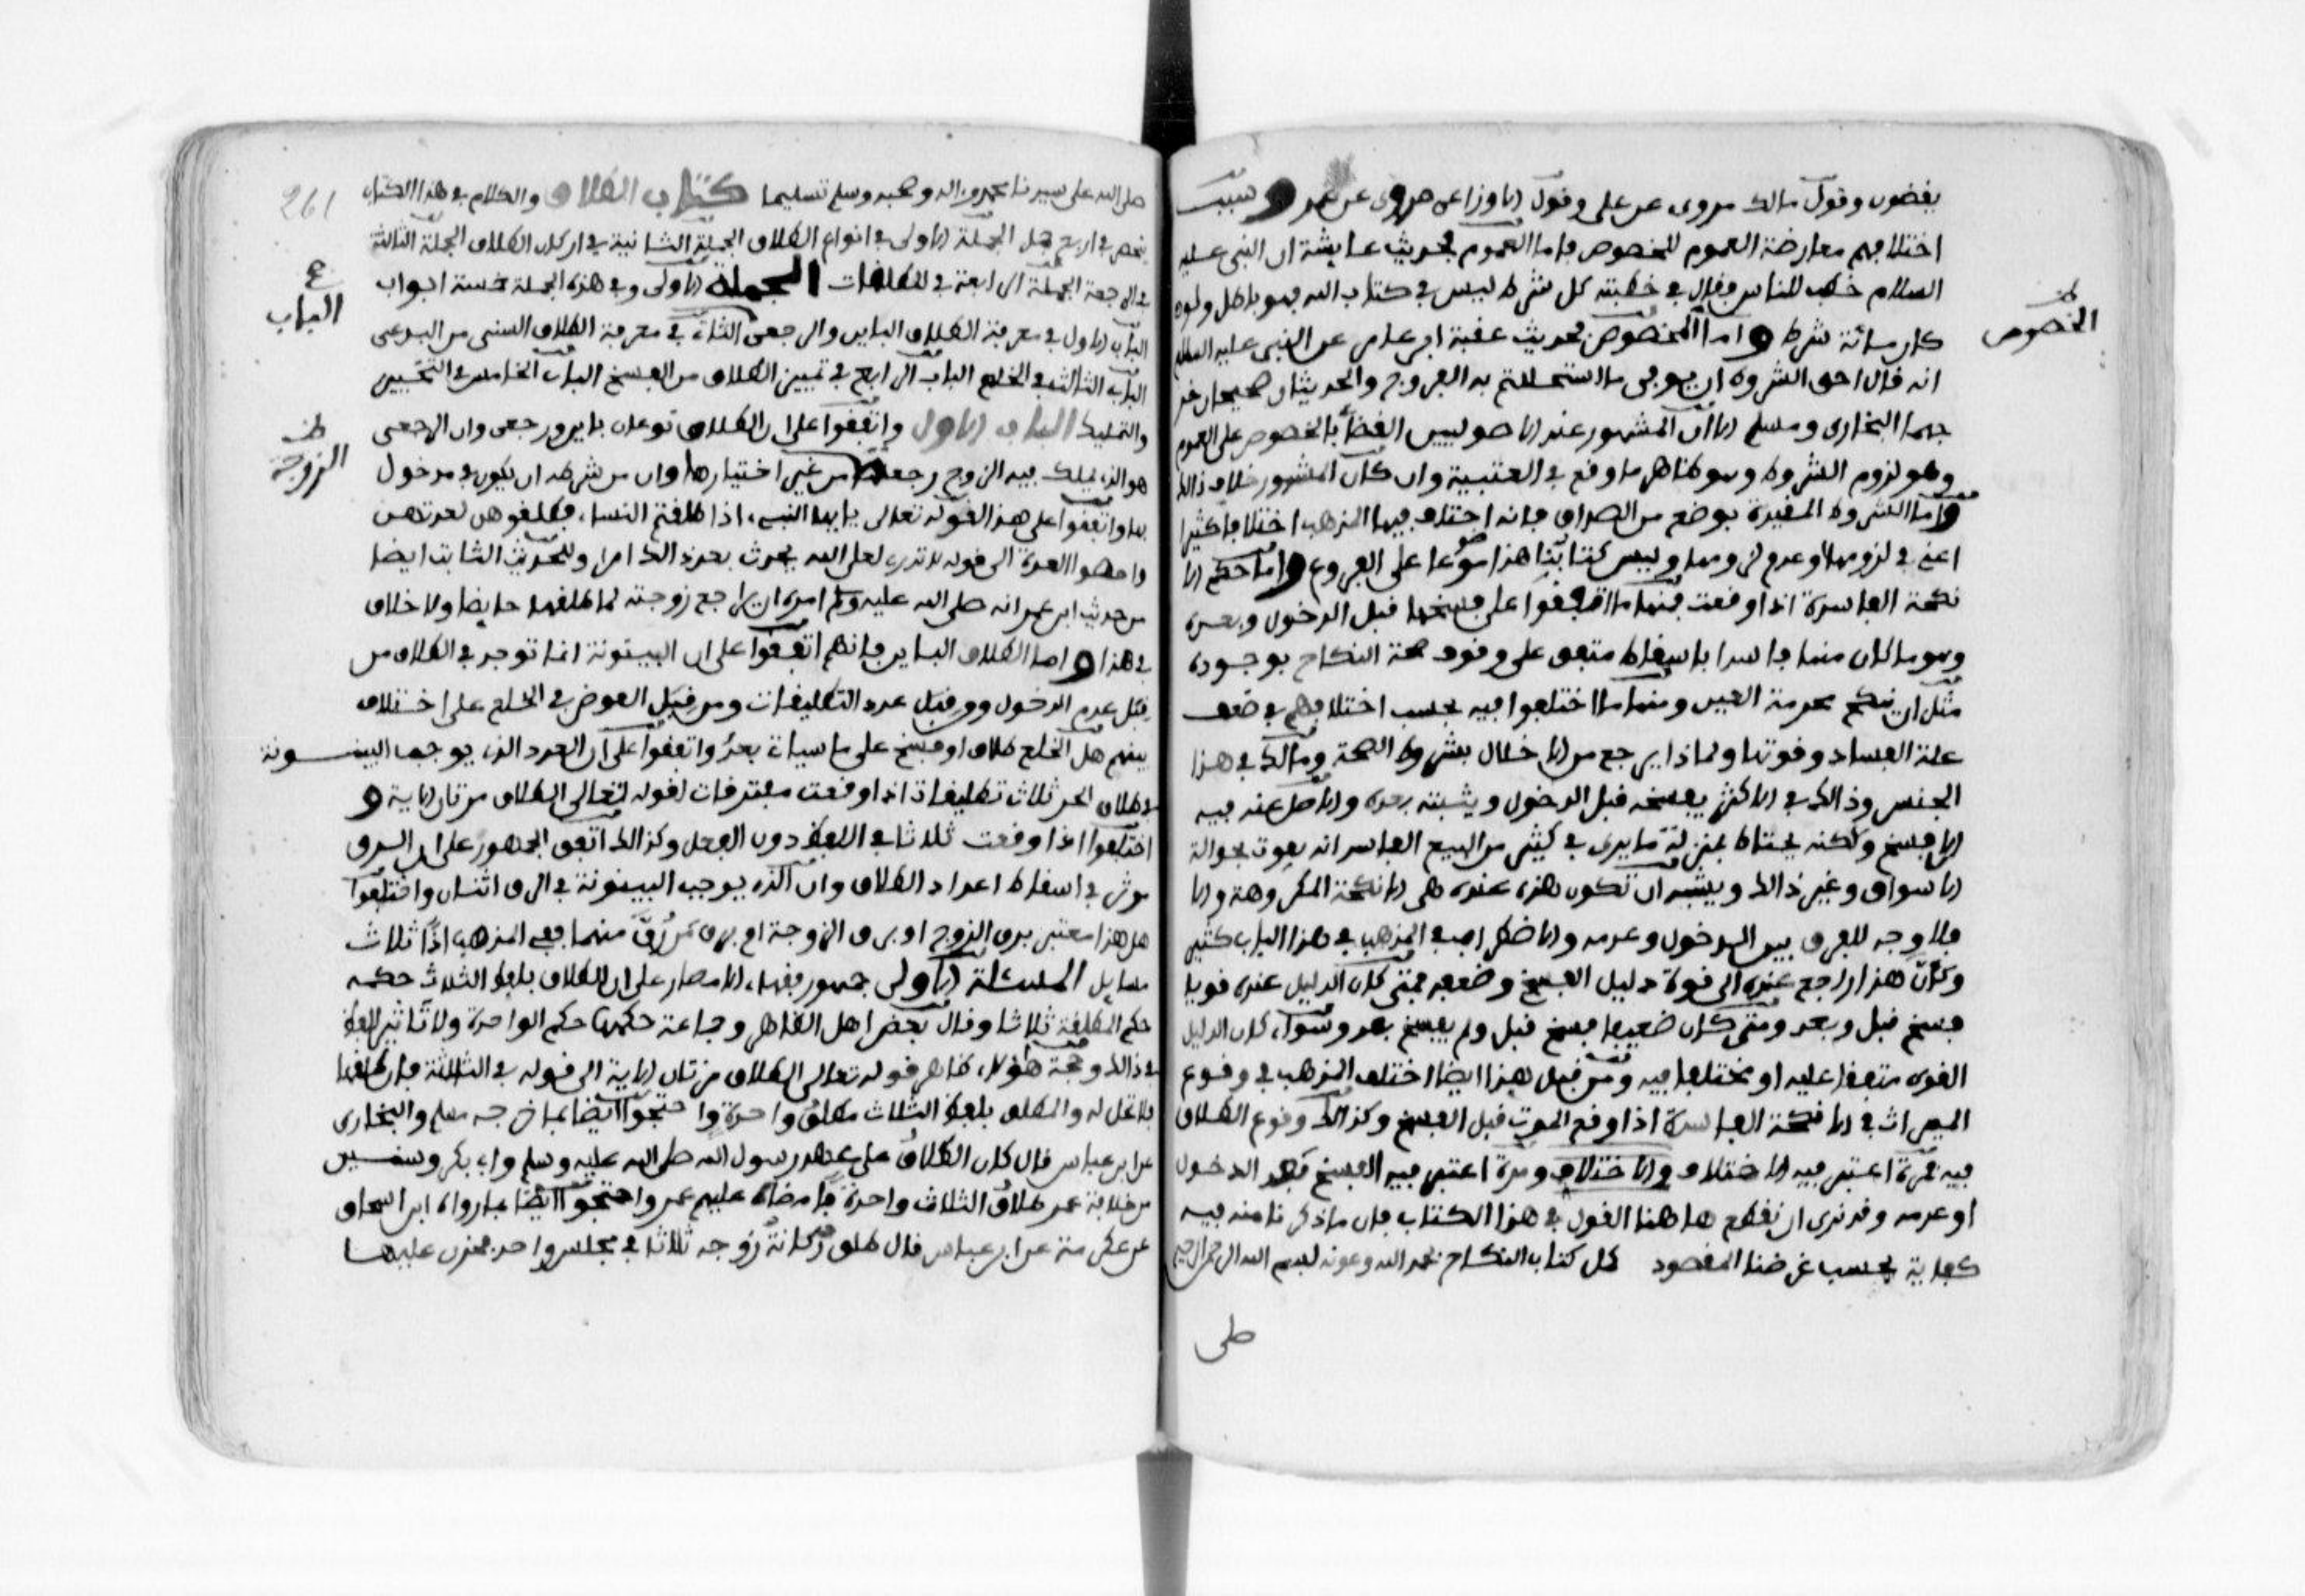 يقضون وقول مالك مروى عن على وقول الاوزاعى مروى عن عمر وسبب
اختلافهم معارضة العموم للخصوص فاما العموم فحديث عايشة ان النبى عليه
السلام خطب الناس فقال فى خطبته كل شرط ليس فى كتاب الله فهو باطل ولو
كان مائة شرط واما الخصوص فحديث عقبة ابن عامر عن النبى عليه السلام
الخصوص
انه قال احق الشروط ان يوفى ما استحللتم به الفروج والحديثان صحيحان خر
جهما البخارى ومسلم الا ان المشهور عند الاصوليين القضا بالخصوص على العموم
وهو لزوم الشروط وهو ظاهر ما وقع فى العتبية وان كان المشهور خلاف ذالك
واما الشروط المقيدة بوضع من الصداق فانه اختلف فيها المذهب اختلافا كثيرا
اعنى فى لزومها او عدم لزومها وليس كتابنا هذا موضوعا على الفروع واما حكم الا
نكحة الفاسدة اذا وقعت فمنها ما اتفقوا على فسخها قبل الدخول وبعده
وهو ما كان منها فاسدا باسقاط متفق على وقوف صحة النكاح بوجوده
مثل ان ينكح محرمة العين ومنها ما اختلفوا فيه بحسب اختلافهم فى ضعف
علة الفساد وقوتها ولماذا يرجع من الاخلال بشروط الصحة ومالك فى هذا
الجنس وذالك فى الاكثر يفسخه قبل الدخول ويثبته بعده والاصل عنده فيه
الا فسخ ولكنه يحتاط بمنزلة ما يرى فى كثير من البيع الفاسد انه يفوت بحوالة
الاسواق وغير ذالك ويشبه ان تكون هذه عنده هى الانكحة المكروهة والا
فلا وجه للفرق بين الدخول وعدمه والاضطراب فى المذهب فى هذا الباب كثير
وكأن هذا راجع عنده الى قوة دليل الفسخ وضعفه فمتى كان الدليل عنده قويا
فسخ قبل وبعد ومتى كان ضعيفا فسخ قبل ولم يفسخ بعد وسواء كان الدليل
القوى متفقا عليه او مختلفا فيه ومن قبل هذا ايضا اختلف المذهب فى وقوع
الميراث فى الانكحة الفاسدة اذا وقع الموت قبل الفسخ وكذالك وقوع الطلاق
فيه فمرة اعتبر فيه الاختلاف والاختلاف ومرة اعتبر فيه الفسخ بعد الدخول
او عدمه وقد نرى ان نقطع هاهنا القول فى هذا الكتاب فان ما ذكرنا منه فيه
كفاية بحسب غرضنا المقصود كمل كتاب النكاح بحمد الله وعونه بسم الله الرحمن الرحيم
صلى
261
صلى الله على سيدنا محمد واله وصحبه وسلم تسليما كتاب الطلاق والكلام فى هذا الكتاب
ينحصر فى اربع جمل الجملة الاولى فى انواع الطلاق الجملة الثانية فى اركان الطلاق الجملة الثالثة
فى الرجعة الجملة الرابعة فى المطلقات الجملة الاولى وفى هذه الجملة خمسة ابواب
الباب الاول فى معرفة الطلاق الباين والرجعى الثانى فى معرفة الطلاق السنى من البدعى
الباب
الباب الثالث فى الخلع الباب الرابع فى تمييز الطلاق من الفسخ الباب الخامس فى التخيير
والتمليك الباب الاول واتفقوا على ان الطلاق نوعان باين ورجعى وان الرجعى
هو الذى يملك فيه الزوج رجعة من غير اختيارها وان من شرطه ان يكون فى مدخول
الزوجة
بها واتفقوا على هذا لقوله تعالى يا ايها النبىء اذا طلقتم النساء فطلقوهن لعدتهن
واحصوا العدة الى قوله لا تدرى لعل الله يحدث بعد ذالك امرا وللحديث الثابت ايضا
من حديث ابن عمر انه صلى الله عليه وسلم امره ان يراجع زوجته لما طلقها حايضا ولا خلاف
فى هذا واما الطلاق الباين فانهم اتفقوا على ان البينونة انما توجد فى الطلاق من
قبل عدم الدخول ومن قبل عدد التطليقات ومن قبل العوض فى الخلع على اختلاف
بينهم هل الخلع طلاق او فسخ على ما سياتى بعد واتفقوا على ان العدد الذى يوجب البينونة
فى طلاق الحر ثلاث تطليقات اذا وقعت مفترقات لقوله تعالى الطلاق مرتان الاية و
اختلفوا اذا وقعت ثلاثا فى اللفظ دون الفعل وكذالك اتفق الجمهور على ان الرق
موثر فى اسقاط اعداد الطلاق وان الذى يوجب البينونة فى الرق اثنان واختلفوا
هل هذا معتبر برق الزوج او برق الزوجة ام برق من رق منهما ففى المذهب اذا ثلاث
مسايل المسئلة الاولى جمهور فقهاء الامصار على ان الطلاق بلفظ الثلاث حكمه
حكم الطلقة ثلاثا وقال بعض اهل الظاهر وجماعة حكمها حكم الواحدة ولا تاثير للفظ
فى ذالك وحجة هؤلاء ظاهر قوله تعالى الطلاق مرتان الاية الى قوله فى الثالثة فان طلقها
فلا تحل له والمطلق بلفظ الثلاث مطلق واحدة واحتجوا ايضا بما خرجه مسلم والبخارى
عن ابن عباس قال كان الطلاق على عهد رسول الله صلى الله عليه وسلم وابى بكر وسنتين
من خلافة عمر طلاق الثلاث واحدة فامضاه عليهم عمر واحتجوا ايضا بما رواه ابن اسحاق
عن عكرمة عن ابن عباس قال طلق ركانة زوجه ثلاثا فى مجلس واحد فحزن عليها